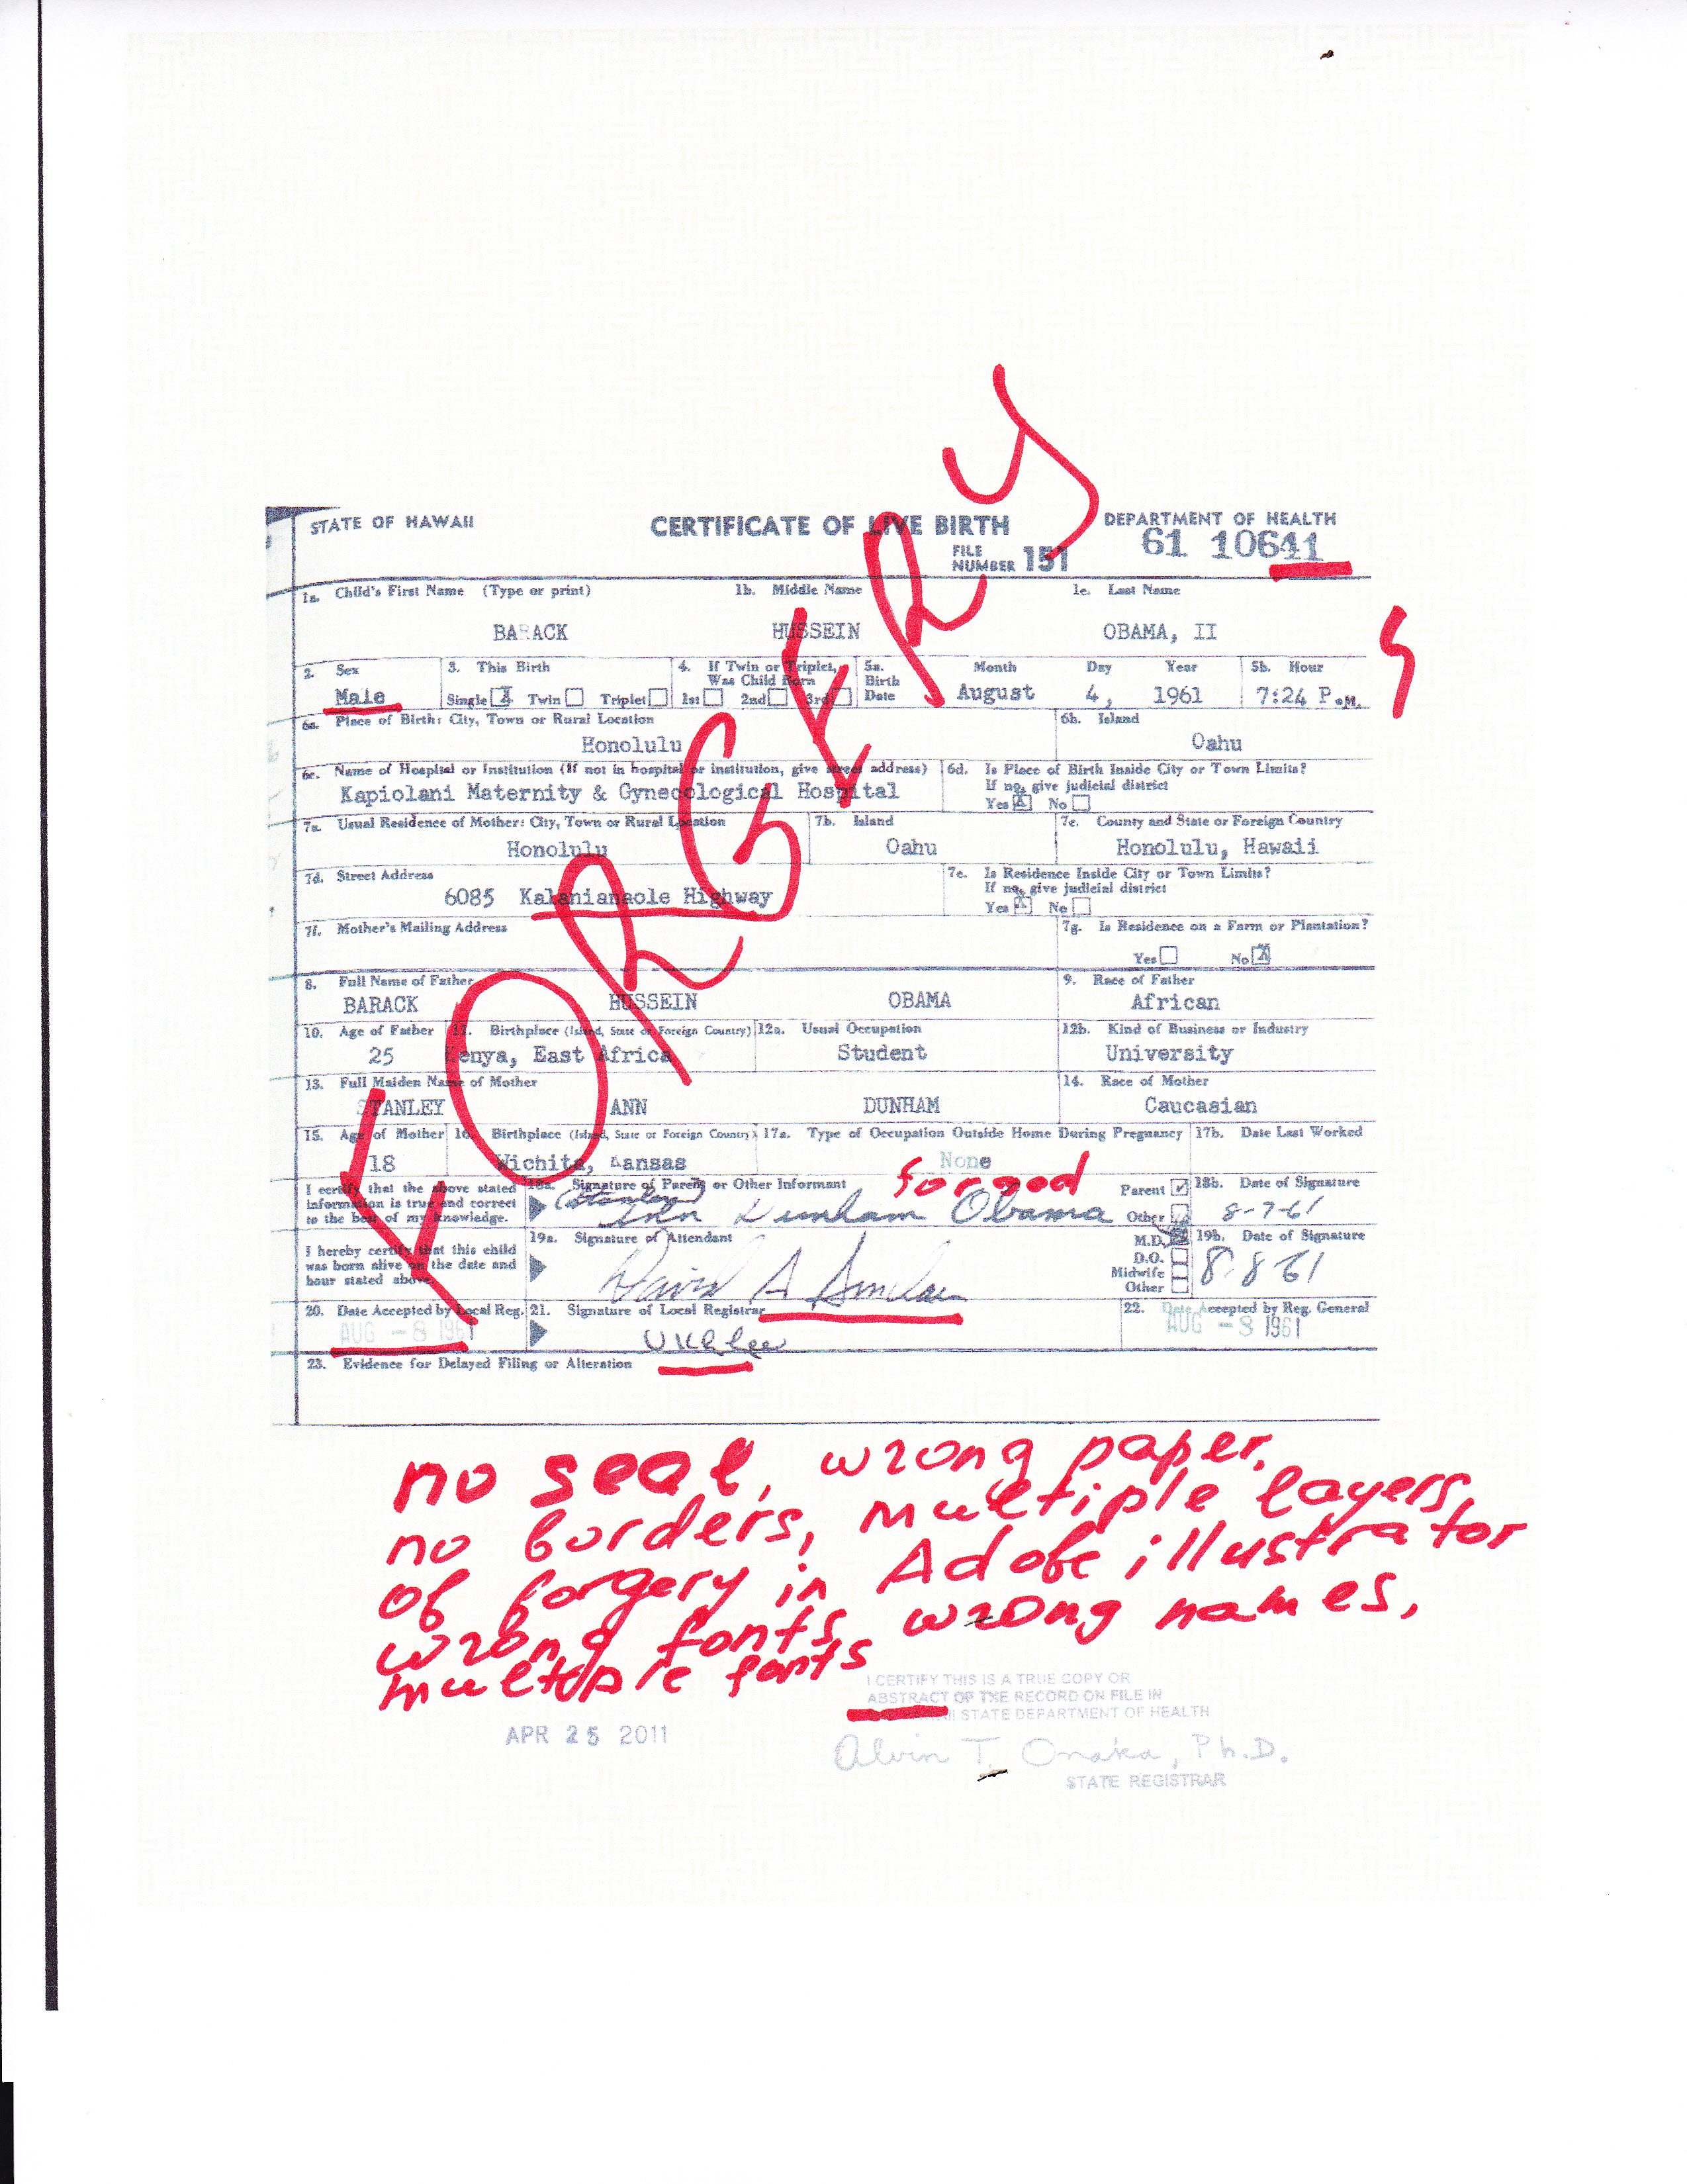 STATE OF HAWAII CERTIFICATE OF LIVE BIRTH DEPARTMENT OF HEALTH
FILE NUMBER 151 61 10641
1a. Child's First Name (Type or print) 1b. Middle Name 1c. Last Name
BARACK HUSSEIN OBAMA, II
2. Sex 3. This Birth 4. If Twin or Triplet, Was Child Born 5a. Birth Date Month Day Year 5b. Hour
Male Single X Twin Triplet 1st 2nd 3rd August 4, 1961 7:24 P.M.
6a. Place of Birth: City, Town or Rural Location 6b. Island
Honolulu Oahu
6c. Name of Hospital or Institution (If not in hospital or institution, give street address) 6d. Is Place of Birth Inside City or Town Limits?
If no, give judicial district
Kapiolani Maternity & Gynecological Hospital Yes X No
7a. Usual Residence of Mother: City, Town or Rural Location 7b. Island 7c. County and State or Foreign Country
Honolulu Oahu Honolulu, Hawaii
7d. Street Address 7e. Is Residence Inside City or Town Limits?
If no, give judicial district
6085 Kalanianaole Highway Yes X No
7f. Mother's Mailing Address 7g. Is Residence on a Farm or Plantation?
Yes No X
8. Full Name of Father 9. Race of Father
BARACK HUSSEIN OBAMA African
10. Age of Father 11. Birthplace (Island, State or Foreign Country) 12a. Usual Occupation 12b. Kind of Business or Industry
25 Kenya, East Africa Student University
13. Full Maiden Name of Mother 14. Race of Mother
STANLEY ANN DUNHAM Caucasian
15. Age of Mother 16. Birthplace (Island, State or Foreign Country) 17a. Type of Occupation Outside Home During Pregnancy 17b. Date Last Worked
18 Wichita, Kansas None
forged
I certify that the above stated information is true and correct to the best of my knowledge. 18a. Signature of Parent or Other Informant Parent Other 18b. Date of Signature
(Stanley) Ann Dunham Obama 8-7-61
I hereby certify that this child was born alive on the date and hour stated above. 19a. Signature of Attendant M.D. D.O. Midwife Other 19b. Date of Signature
David A Sinclair 8-8-61
20. Date Accepted by Local Reg. 21. Signature of Local Registrar 22. Date Accepted by Reg. General
AUG -8 1961 U K L Lee AUG -8 1961
23. Evidence for Delayed Filing or Alteration
FORGERY
no seal, wrong paper,
no borders, multiple layers
of forgery in Adobe illustrator
wrong fonts, wrong names,
multiple fonts
I CERTIFY THIS IS A TRUE COPY OR
ABSTRACT OF TXE RECORD ON FILE IN
STATE DEPARTMENT OF HEALTH
APR 25 2011
Alvin T. Onaka, Ph.D.
STATE REGISTRAR